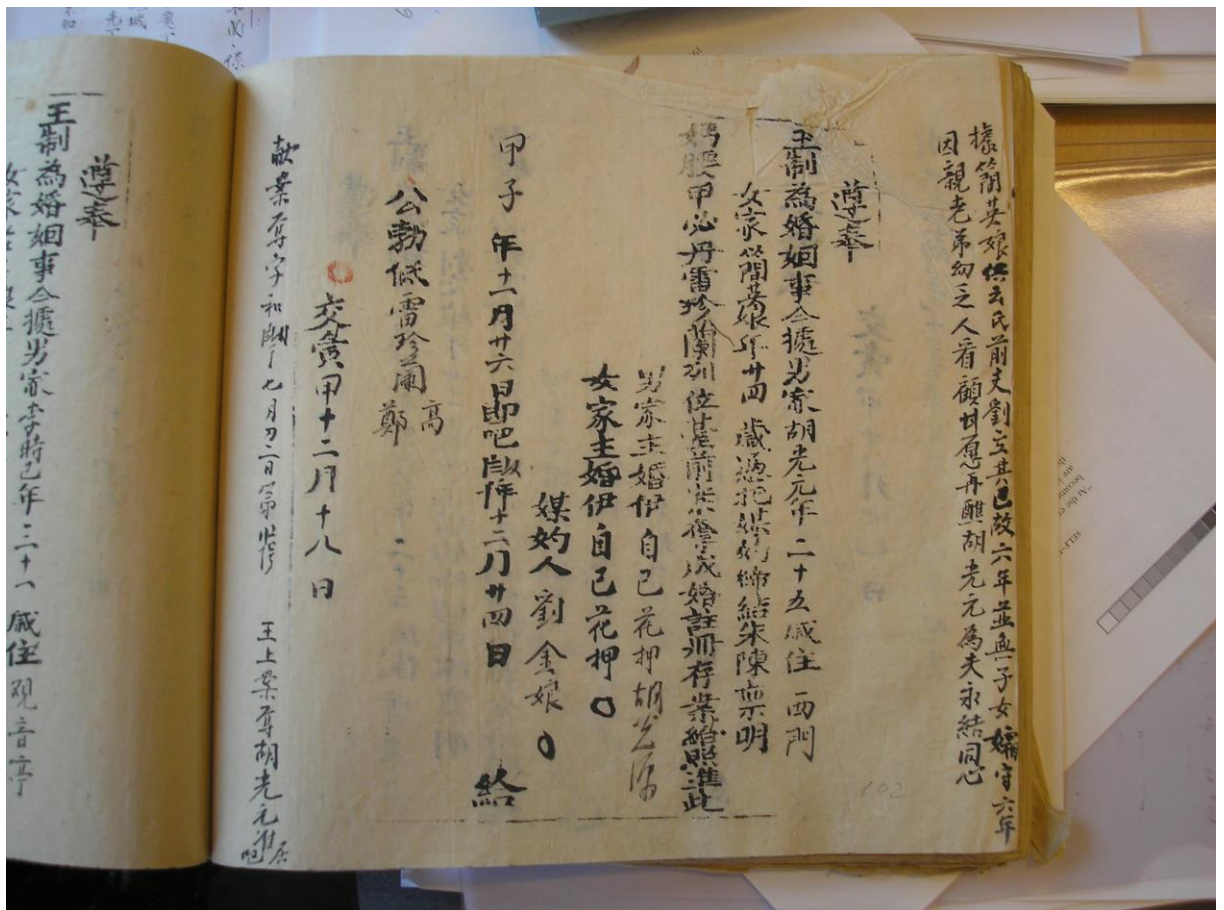 據簡英娘供云氏前夫劉立其已故六年並無子女孀守六年
因親老弟幼乏人看顧甘愿再醮胡光元為夫永結同心
遵奉
王制為婚姻事今據男家胡光元年二十五歲住西門
女家簡英娘年廿四歲憑托媒妁締結朱陳稟明
媽腰甲必丹雷珍蘭列位臺前成婚註冊存案給照准此
男家主婚伊自己花押胡光源
女家主婚伊自己花押
媒妁人劉金娘
甲子年十一月廿六日即吧 十二月廿四日 給
公勃低雷珍蘭 高 鄭
交黃甲十二月十八日
案奪字和 七月初二日第 王上案奪胡光元准
遵奉
王制為婚姻事今據男家李時已年三十一歲住觀音亭
102